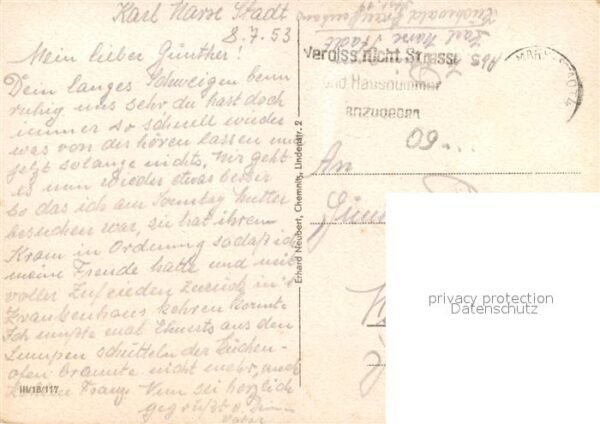 Karl Marx Stadt
8.7.53
Mein lieber Günther!
Dein langes Schweigen beun
ruhig uns sehr du hast doch
immer so schnell wieder
was von dir hören lassen und
jetzt so lange nichts. Mir geht
es nun wieder etwas besser
so das ich am Sonntag Mutter
besuchen war, sie hat ihren
Kram in Ordnung sodaß ich
meine Freude hatte und
voller Zufrieden zurück in's
Krankenhaus kehren konnte
Ich mußte mal aus den
Lumpen schütteln der Küchen-
ofen brannte nicht mehr, auch
Nun sei herzlich
gegrüßt v. Dein
Vater
Abs
Karl Marx Stadt
Vergiss nicht Strasse
und Hausnummer
anzugeben
60
An
Erhard Neubert, Chemnitz, Lindenstr. 2
III/18/117
privacy protection
Datenschutz